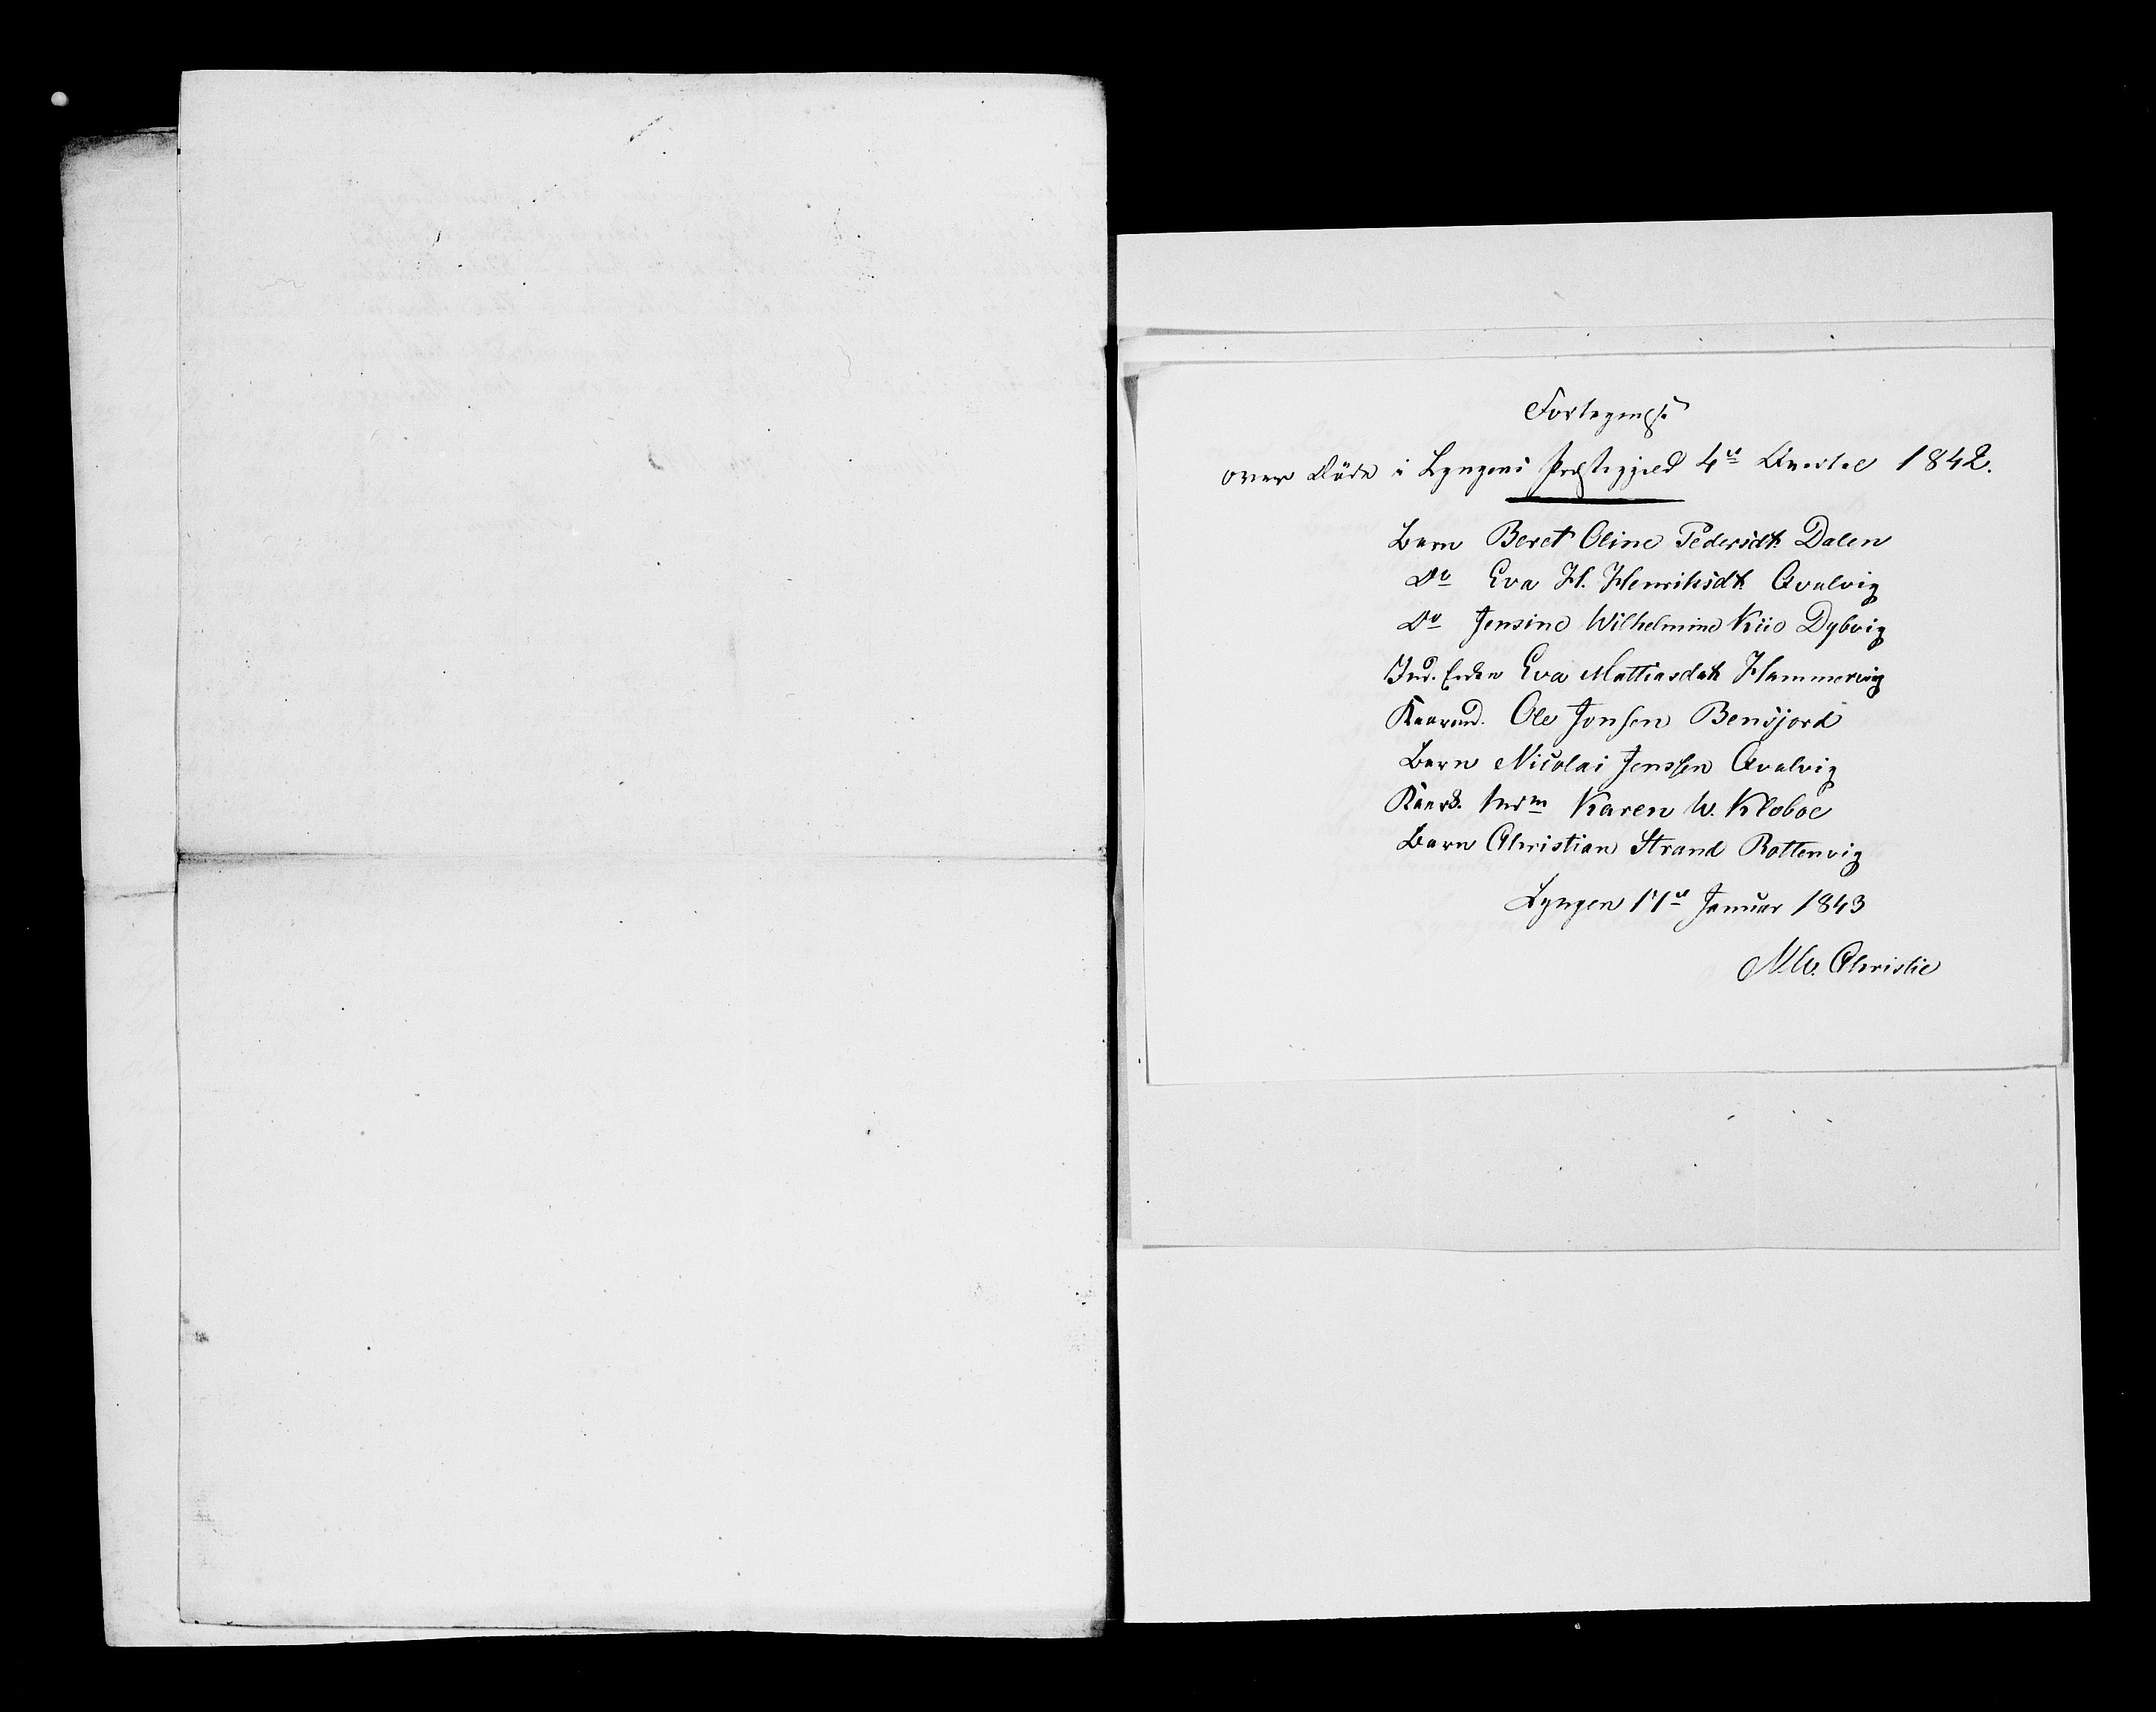 Fortegnelse
over Døde i Lyngens Præstegjeld 4de Qvartal 1842.
Barn Beret Oline Pedersdtr Dalen
Do Eva H. Henriksdtr Qvalvig
Do Jensine Wilhelmine Kiil Dybvig
Ind. Enken Eva Mattiasdatr Hammervig
Kaarmd. Ole Jonsen Bensjord
Barn Nicolai Jenssen Qvalvig
Karen W. Kloboe
Barn Christian Strand Rottenvig
Lyngen 17de Januar 1843
M. W. Christie